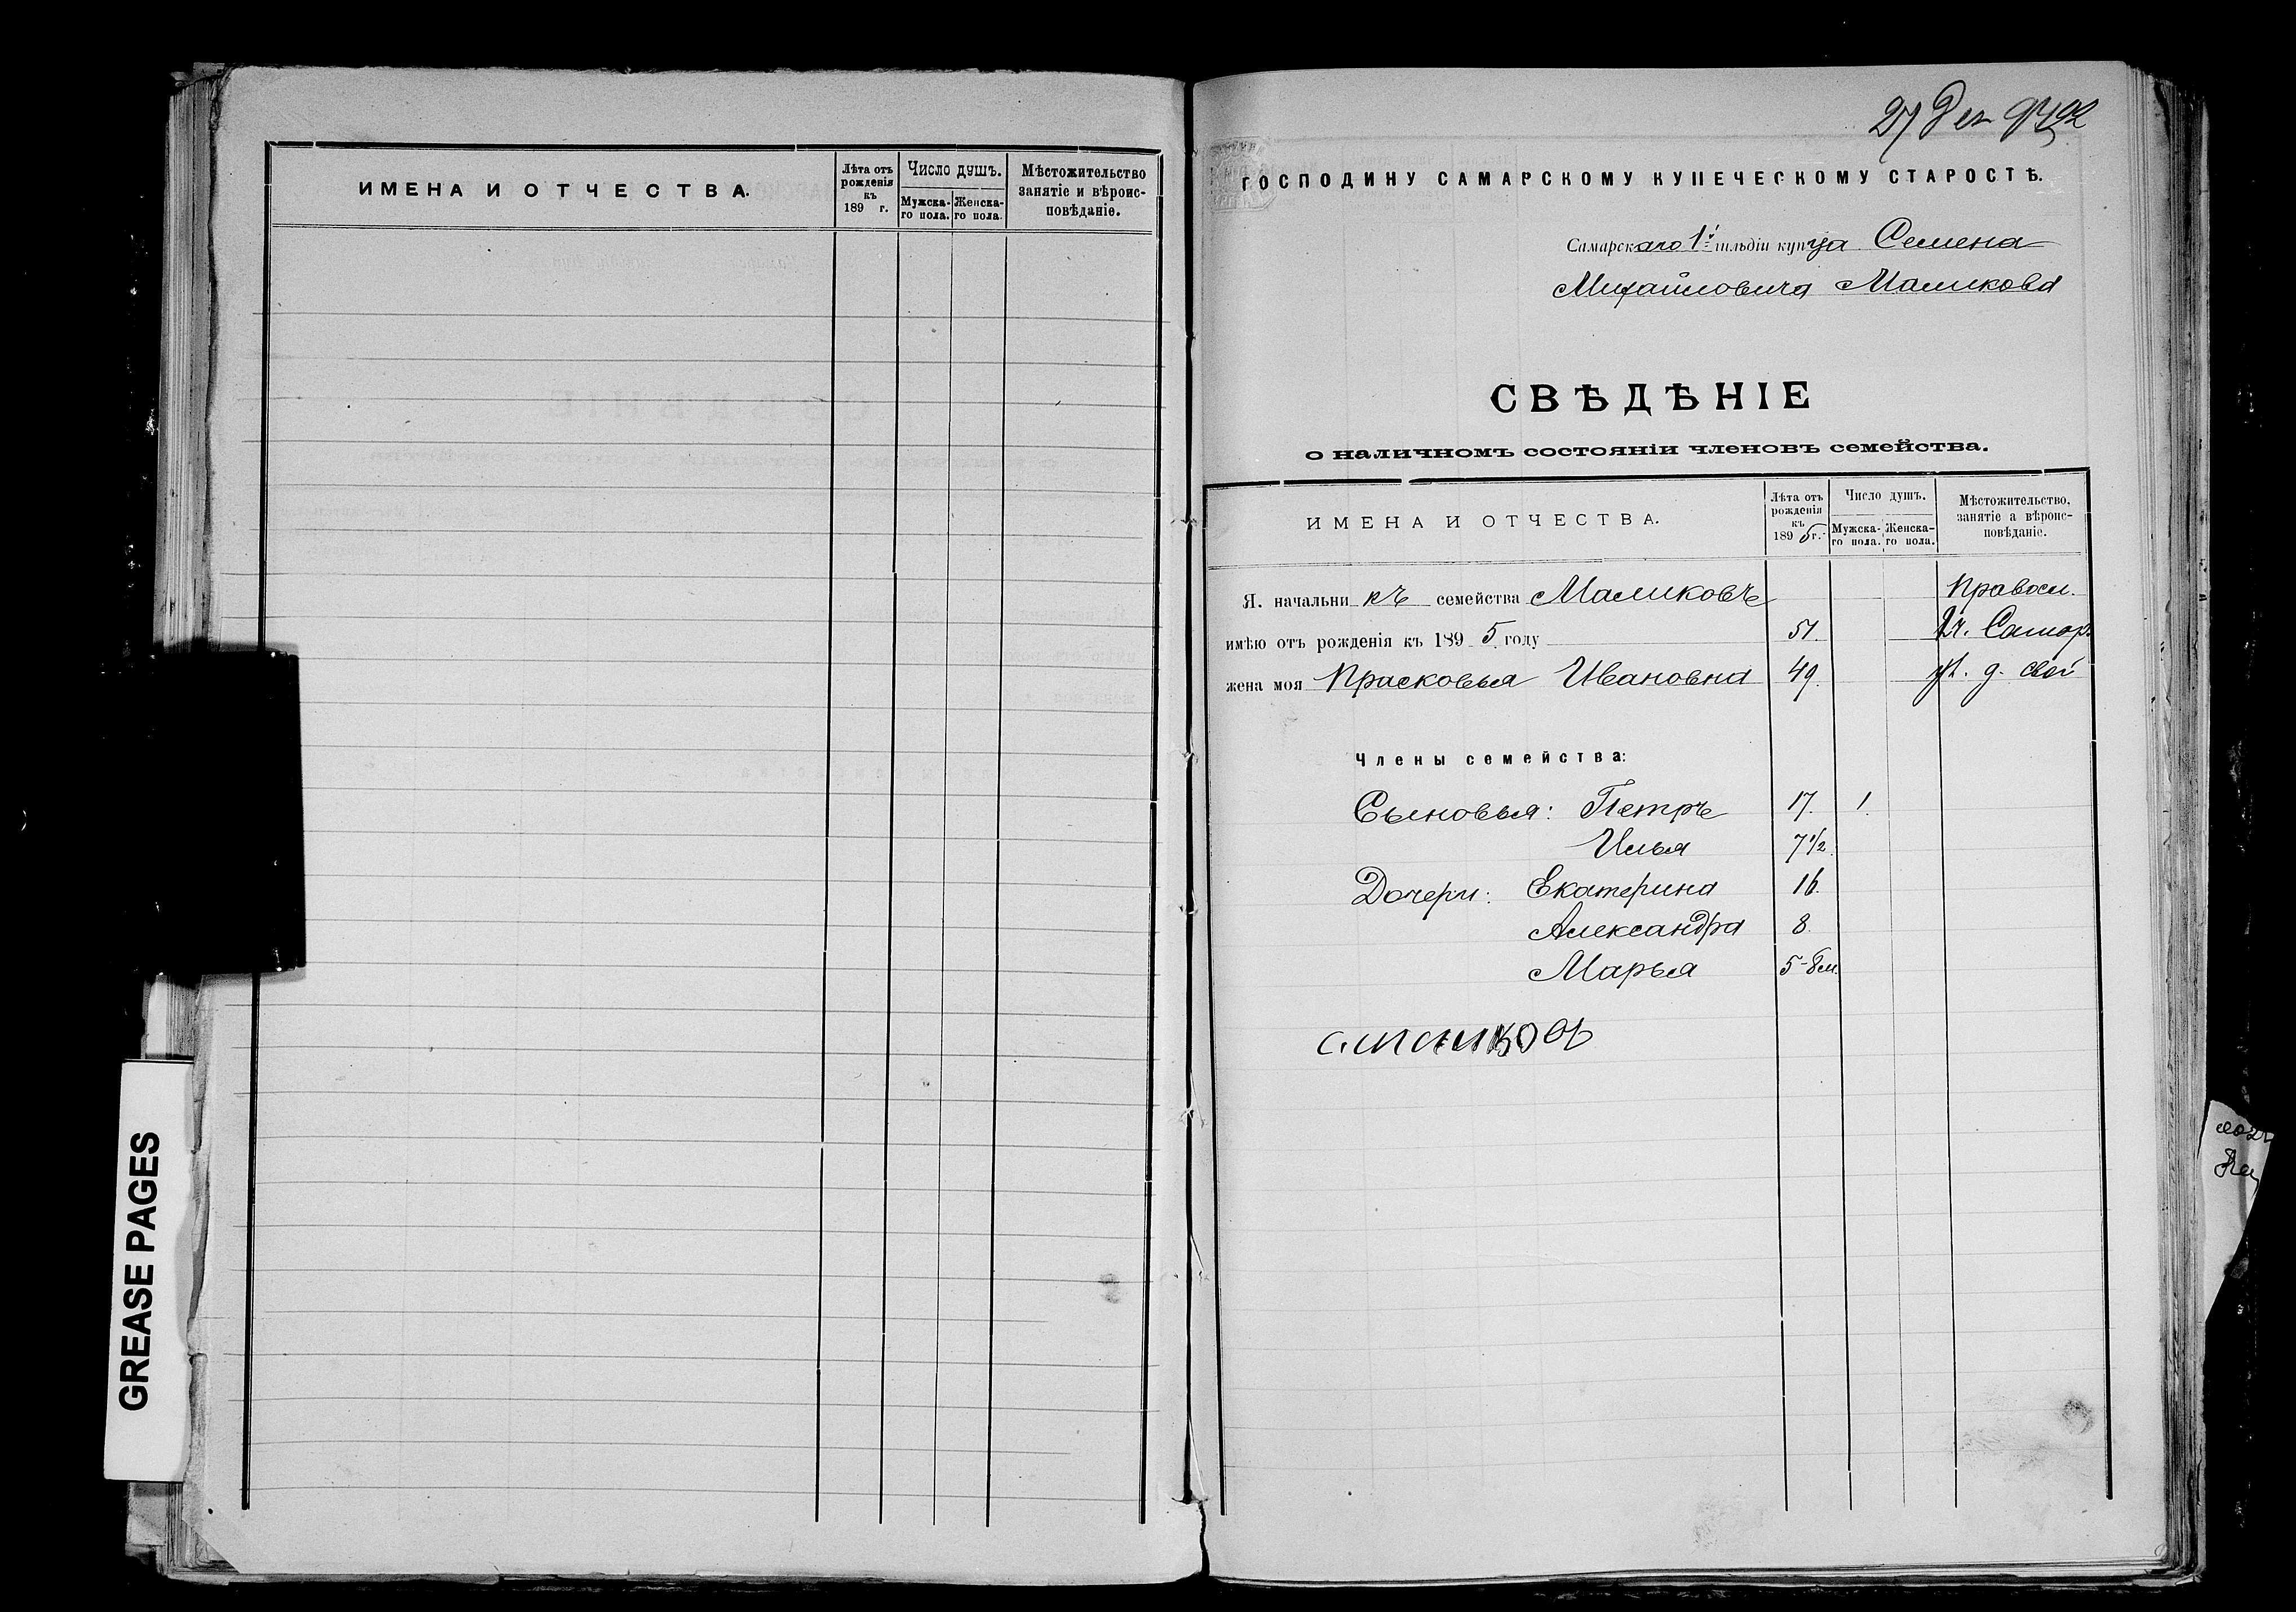 ИМЕНА И ОТЧЕСТВА.
Лѣта отъ рожденія къ 189 г.
Число душъ.
Мужска-го пола.
Женска-го пола.
Мѣстожительство занятіе и вѣроис-повѣданіе.
GREASE PAGES
27 Дек 94
92
ГОСПОДИНУ САМАРСКОМУ КУПЕЧЕСКОМУ СТАРОСТѢ.
Самарскаго 1й гильдіи купца Семена
Михайловича Маликова
СВѢДѢНІЕ
о наличномъ состояніи членовъ семейства.
ИМЕНА И ОТЧЕСТВА.
Лѣта отъ рожденія къ 1895 г.
Число душъ.
Мужска-го пола.
Женска-го пола.
Мѣстожительство, занятіе а вѣроис-повѣданіе.
Я. начальникъ семейства Маликовъ Правосл.
имѣю отъ рожденія къ 1895 году 51 Самар.
жена моя Прасковья Ивановна 49. д. свой
Члены семейства:
Сыновья: Петръ 17. 1.
Илья 7 1/2.
Дочери: Екатерина 16.
Александра 8.
Марья 5-8м.
С. Маликовъ